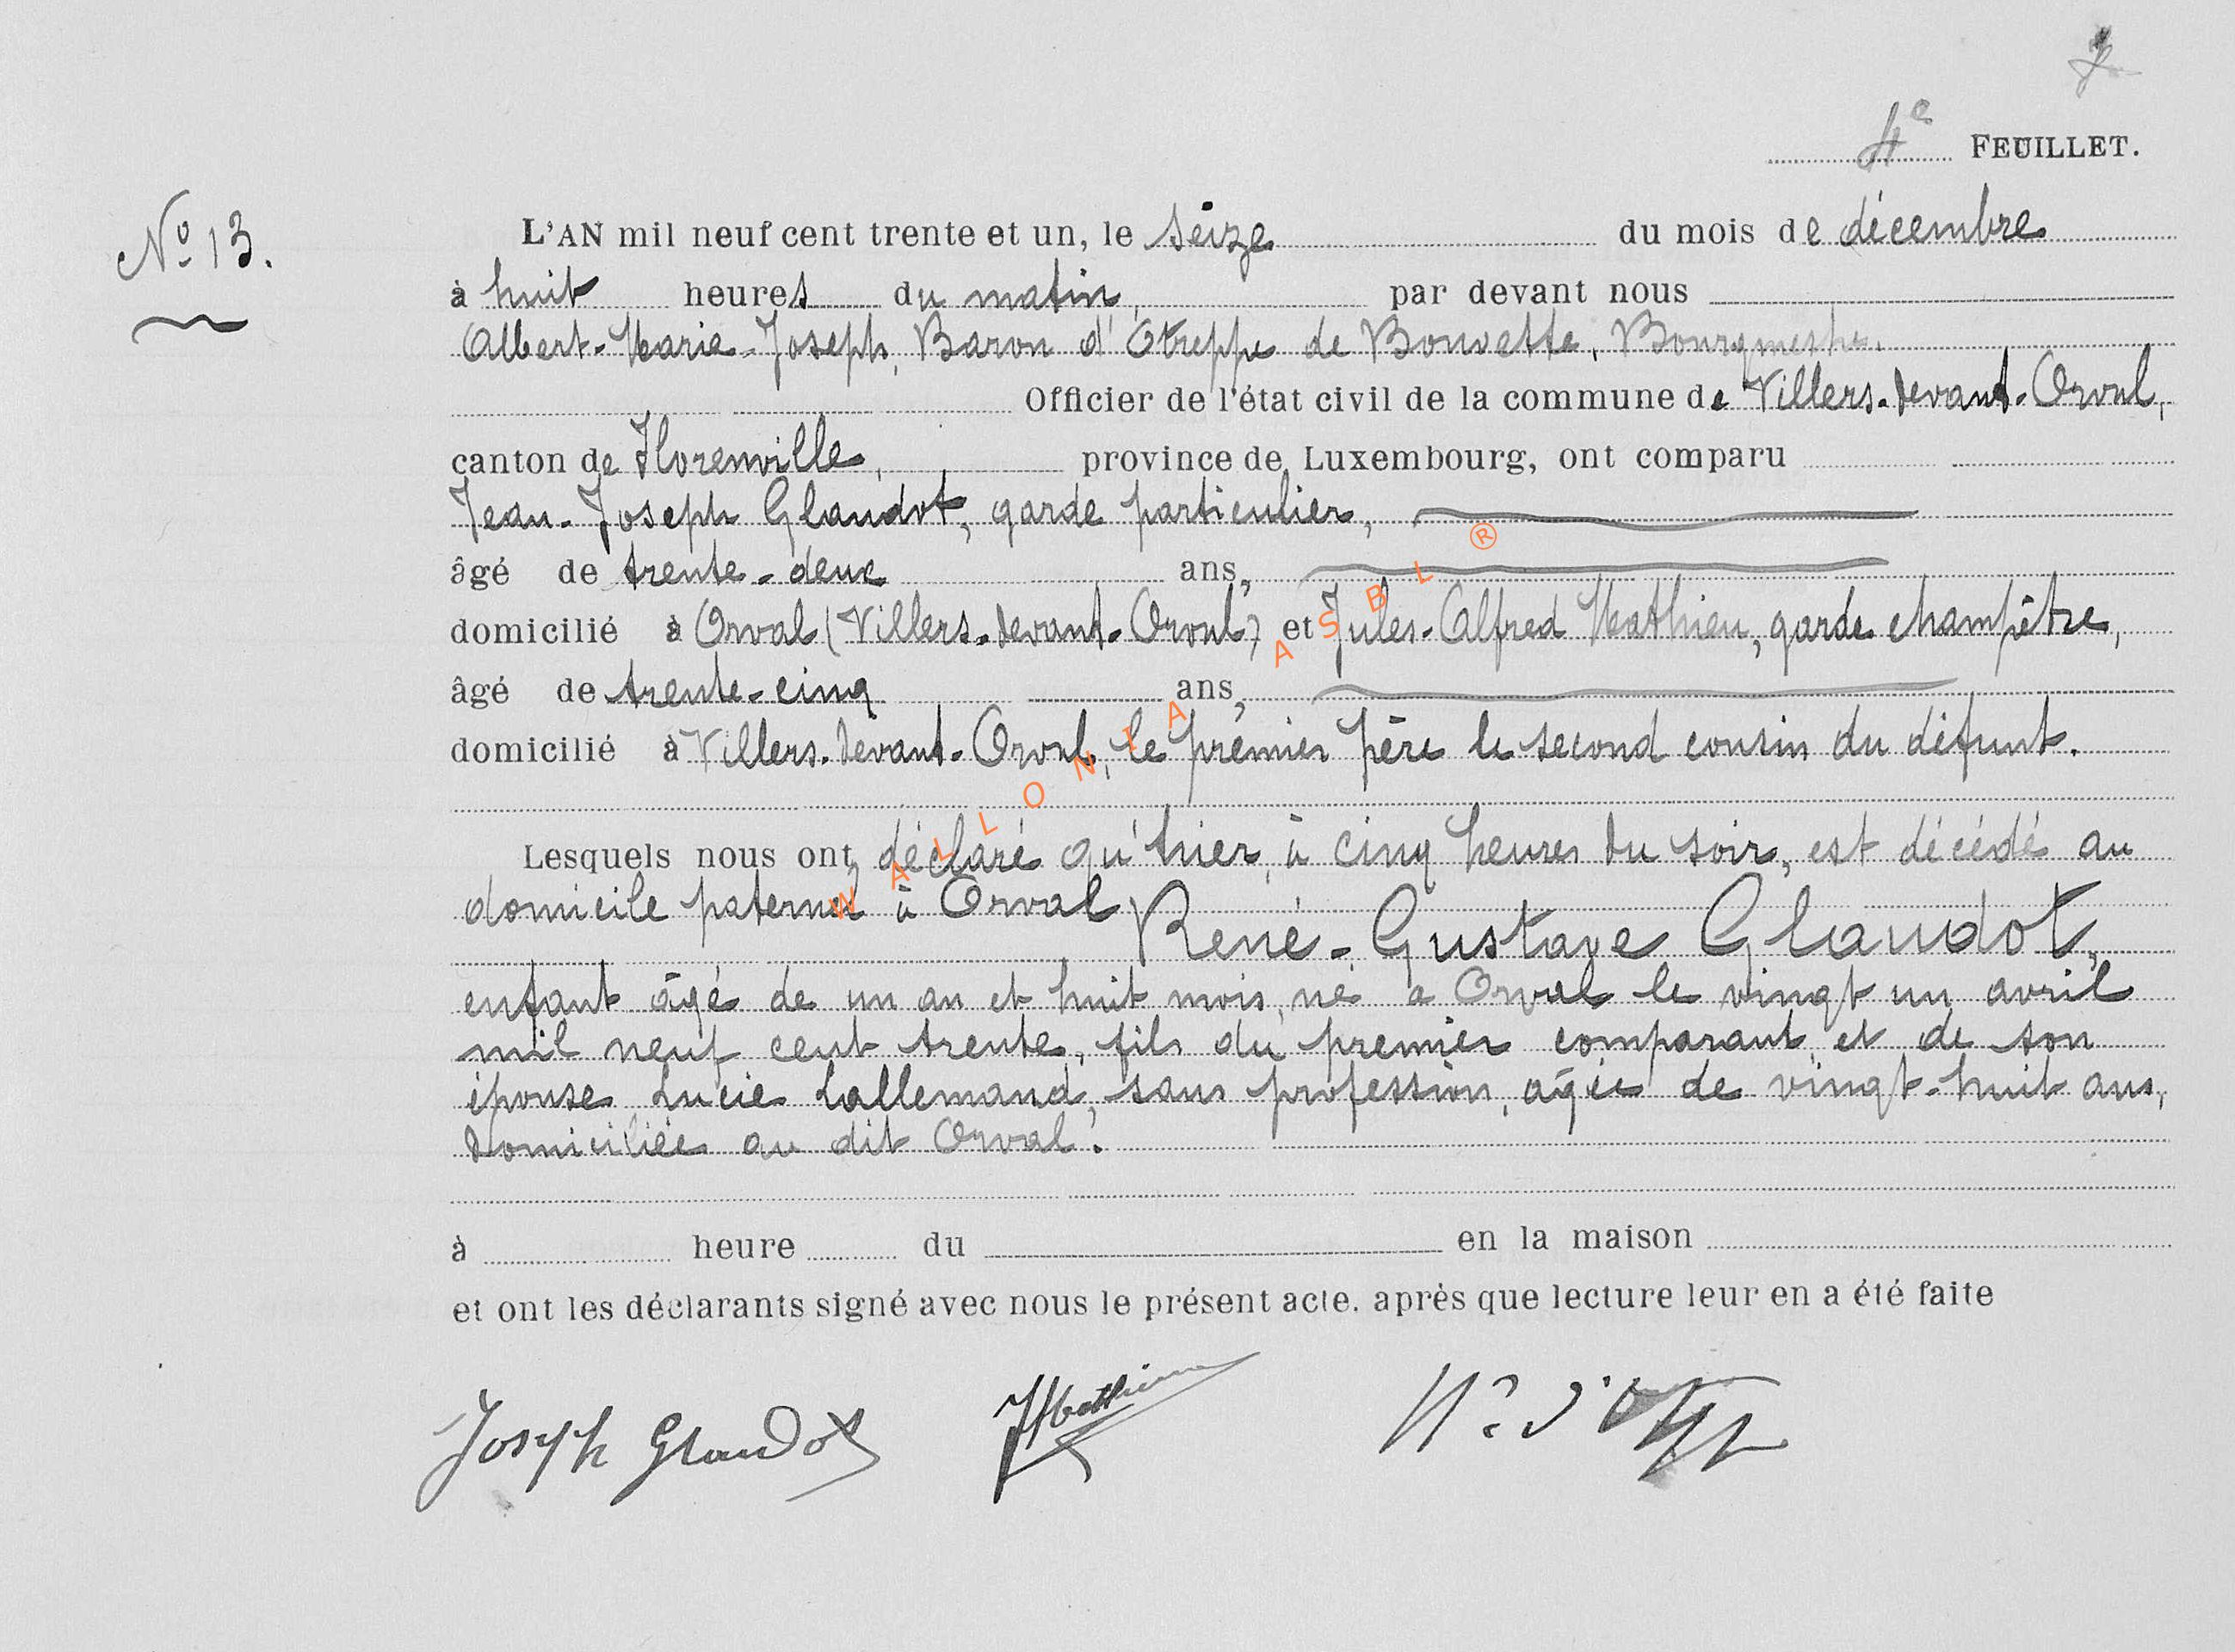 4e FEUILLET.
No 13.
L'AN mil neuf cent trente et un, le seize du mois de décembre
à huit heures du matin, par devant nous
Albert-Marie-Joseph, Baron d'Otreppe de Bouvette, Bourgmestre.
Officier de l'état civil de la commune de Villers-devant-Orval,
canton de Florenville, province de Luxembourg, ont comparu
Jean-Joseph Glaudot, garde particulier,
âgé de trente-deux ans,
domicilié à Orval (Villers-devant-Orval) et Jules-Alfred Mathieu, garde champêtre,
âgé de trente-cinq ans,
domicilié à Villers-devant-Orval, le premier père le second cousin du défunt.
Lesquels nous ont déclaré qu'hier, à cinq heures du soir, est décédé au
domicile paternel à Orval
René-Gustave Glaudot,
enfant âgé de un an et huit mois, né a Orval le vingt un avril
mil neuf cent trente, fils du premier comparant et de son
épouse Lucie Lallemand, sans profession, agée de vingt-huit ans,
domiciliée au dit Orval.
à heure du en la maison
et ont les déclarants signé avec nous le présent acte. après que lecture leur en a été faite
Joseph Glaudot JMathieu
WALLONIA ASBL ®